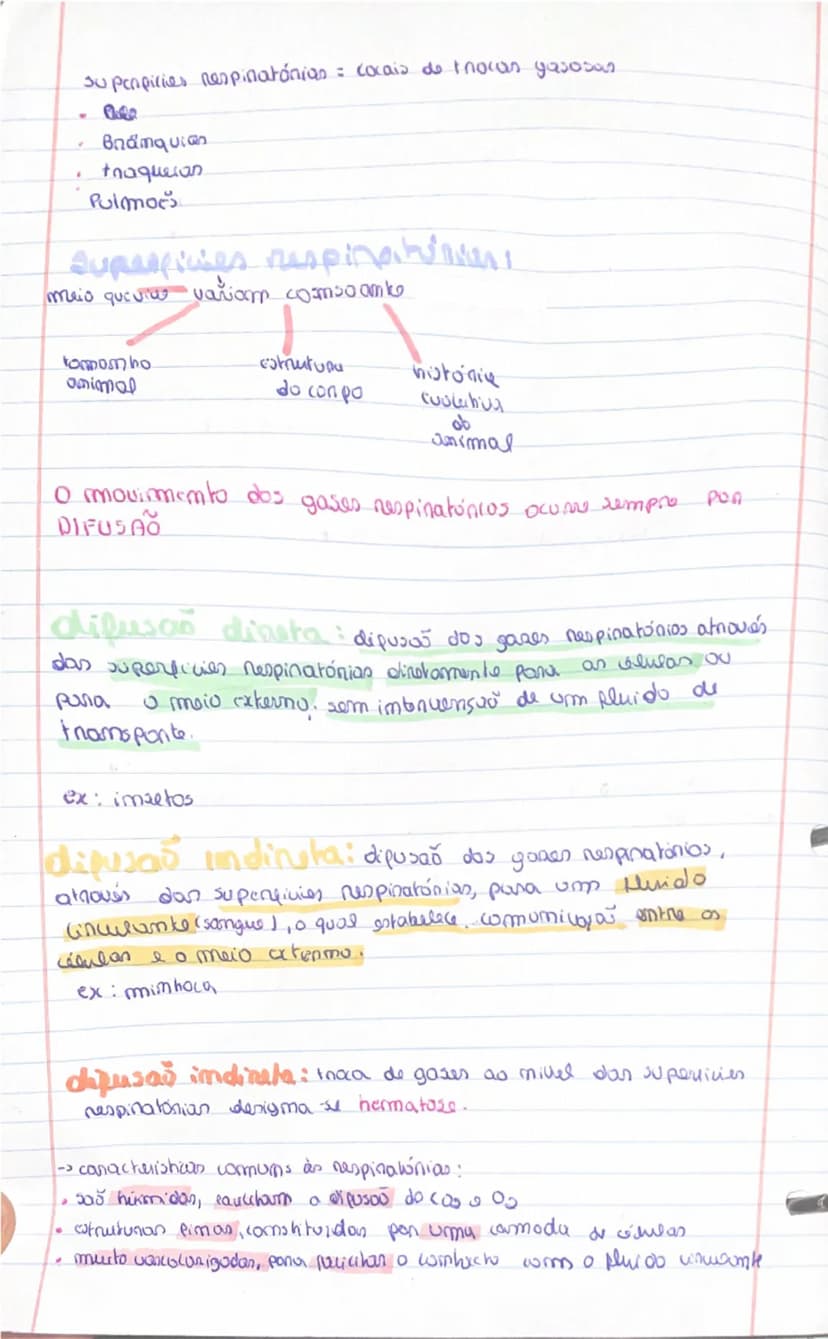 superficies respiratórias = locais de trocas gasosas
• 
• Brânquias
• traqueias
Pulmões
superficies respiratórias:
meio que vive variam consoante
tamanho animal
estrutura do corpo
história evolutiva do animal
O movimento dos gases respiratórios ocorre sempre por
DIFUSÃO
difusão direta: difusão dos gases respiratórios através
das superfícies respiratórias diretamente para as células ou
para o meio externo, sem intervensão de um fluido de
transporte.
ex: insetos
difusão indireta: difusão dos gases respiratórios,
através das superfícies respiratórias, para um fluido
circulante (sangue), o qual estabelece comunicação entre as
células e o meio externo.
ex: minhoca
difusão indireta: troca de gases ao nivel das superficies
respiratórias designa-se hermatose.
-> caracteristicas comuns às respiratórias:
• são húmidas, facilitam a difusão do CO2 e O2
• estruturas finas, constituidas por uma camada de células
• muito vascularizadas, para facilitar o contacto com o fluido circulante